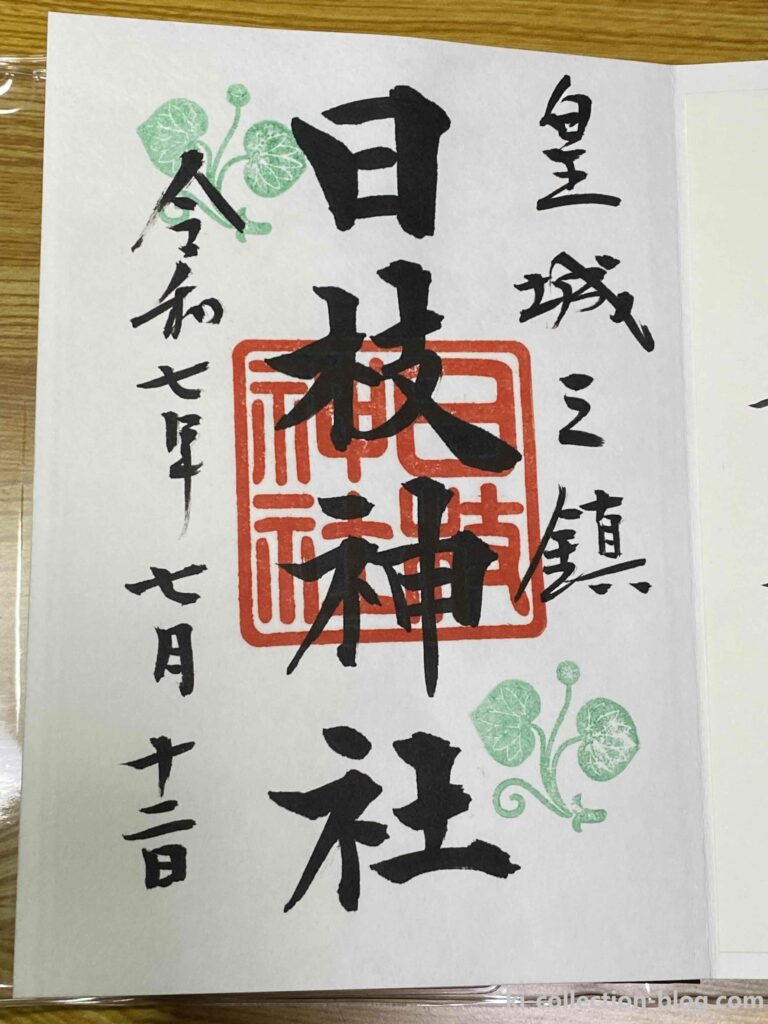 皇城之鎮
日枝神社
日枝神社
令和七年七月十二日
collection-blog.com